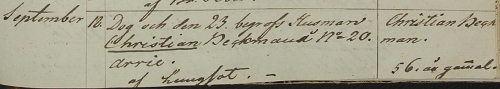 September 18. Dog och den 23 begrofs Husman Christian Beck-
Christian Beckman å No 20. man.
Arrie.
af Lungsot. — 56. år gamal.